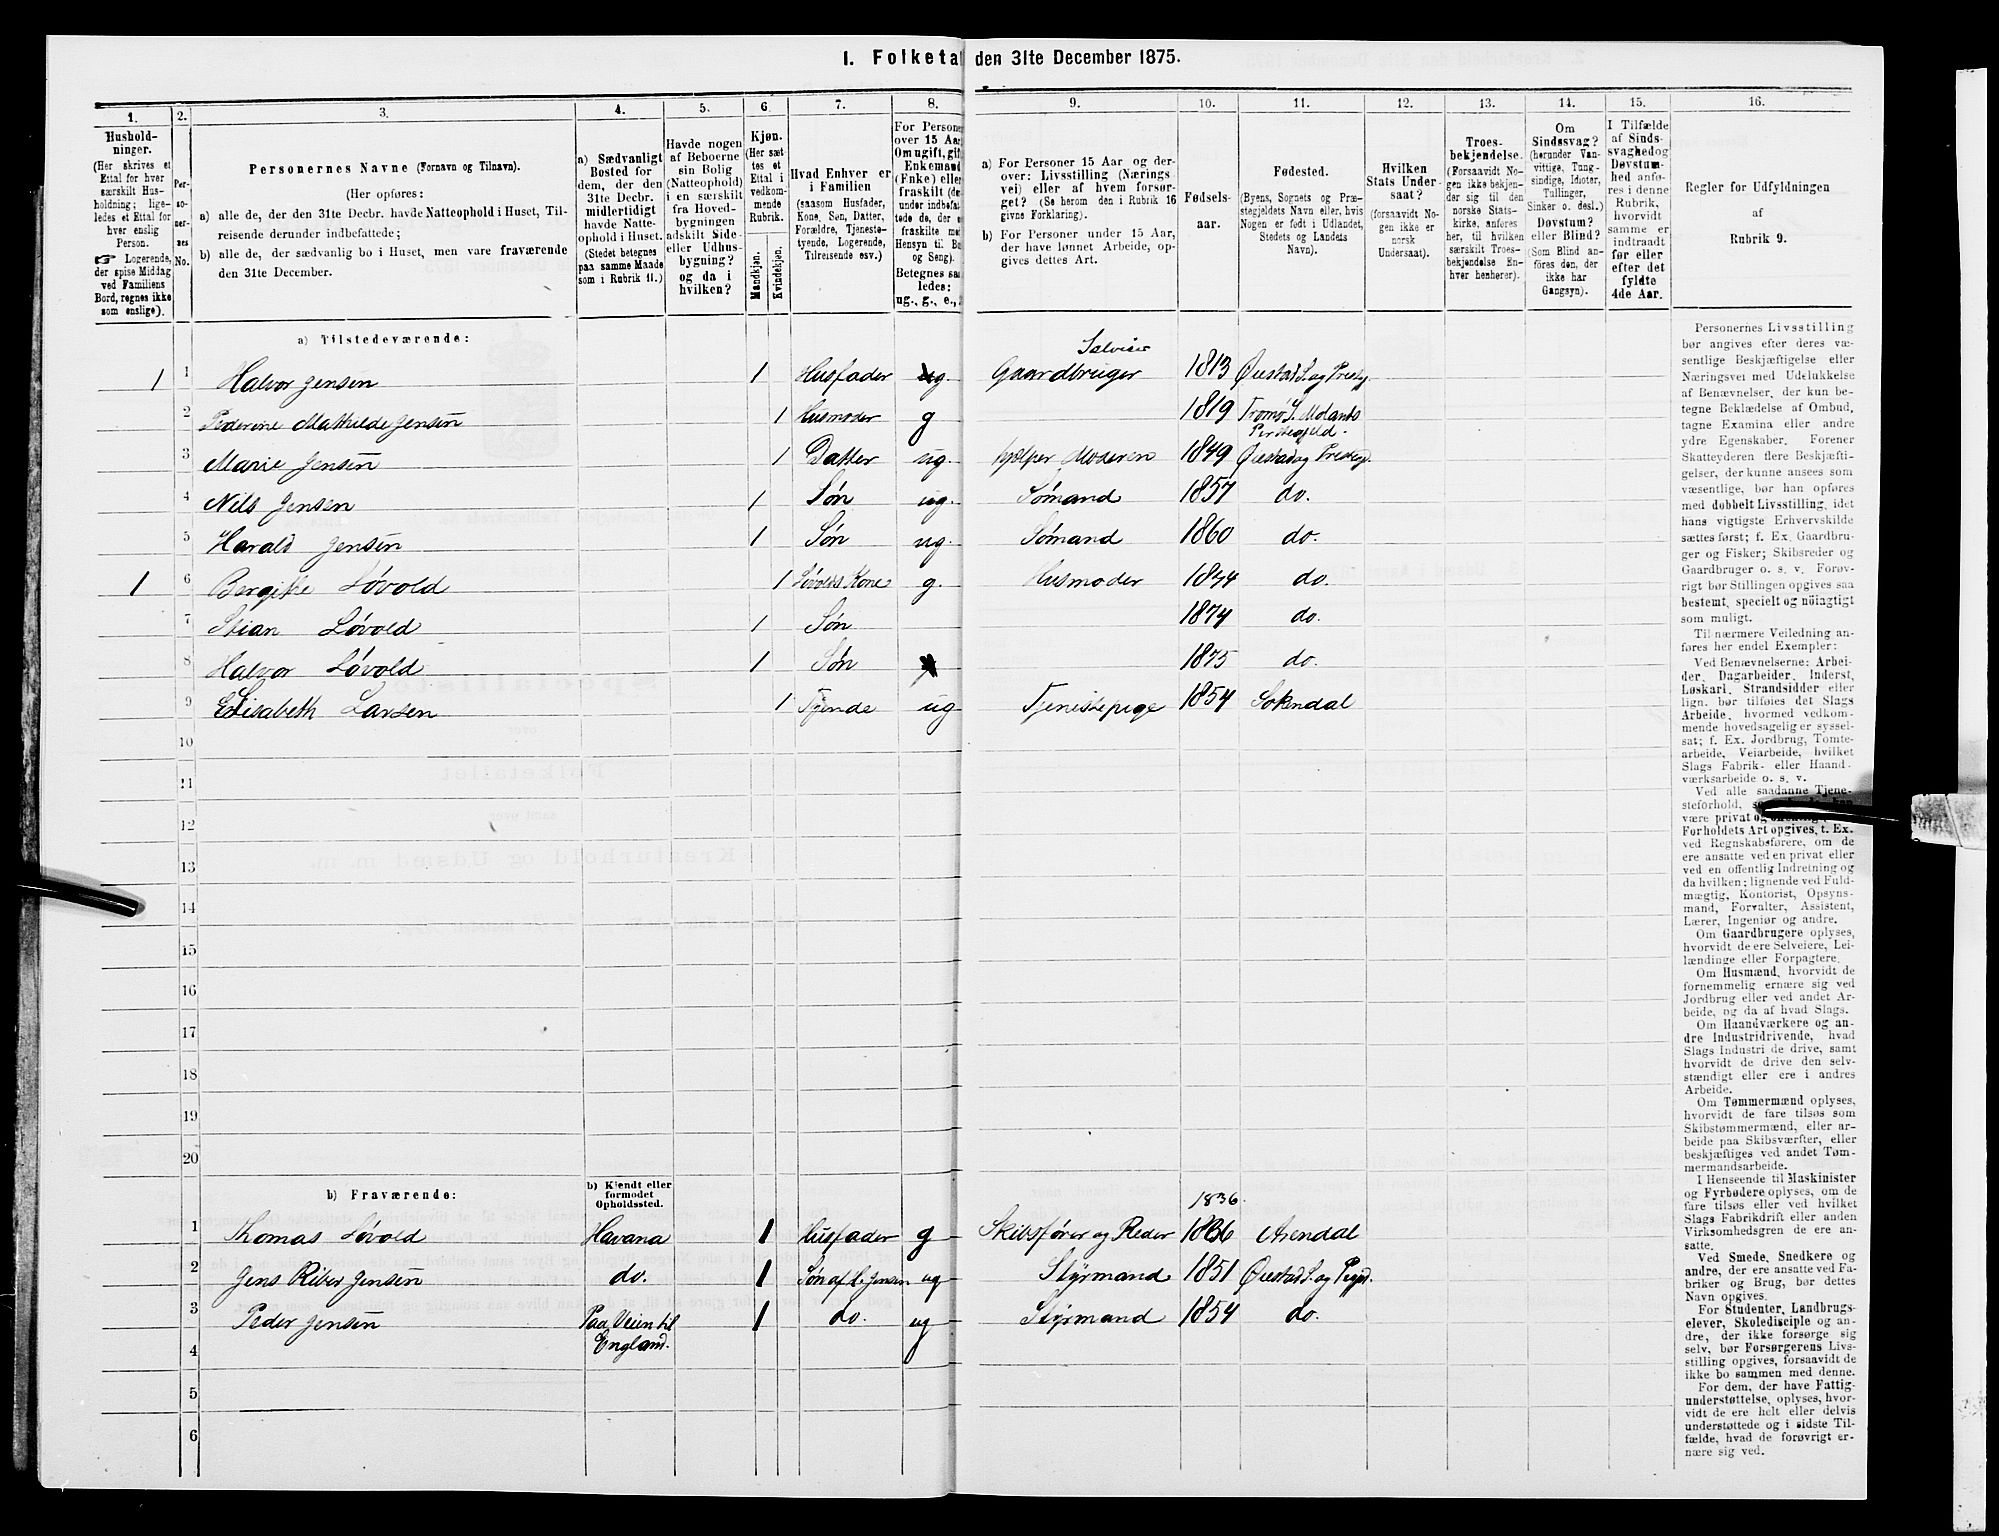 I. Folketal den 31te December 1875.
1. 2. 3. 4. 5. 6. 7. 8. 9. 10. 11. 12. 13. 14. 15. 16.
Hushold-
ninger.
(Her skrives et
Ettal for hver
særskilt Hus-
holdning; lige-
ledes et Ettal for
hver enslig
Person.
☞ Logerende,
der spise Middag
ved Familiens
Bord, regnes ikke
som enslige).
Per-
so-
ner-
nes
No.
Personernes Navne (Fornavn og Tilnavn).
(Her opføres:
a) alle de, der den 31te Decbr. havde Natteophold i Huset, Til-
reisende derunder indbefattede;
b) alle de, der sædvanlig bo i Huset, men vare fraværende
den 31te December.
a) Sædvanligt
Bosted for
dem, der den
31te Decbr.
midlertidigt
havde Natte-
ophold i Huset.
(Stedet betegnes
paa samme Maade
som i Rubrik 11.)
Havde nogen
af Beboerne
sin Bolig
(Natteophold)
i en særskilt
fra Hoved-
bygningen
adskilt Side-
eller Udhus-
bygning?
og da i
hvilken?
Kjøn.
(Her sæt-
tes et
Ettal i
vedkom-
mende
Rubrik.
Mandkjøn.
Kvindekjøn.
Hvad Enhver er
i Familien
(saasom Husfader,
Kone, Søn, Datter,
Forældre, Tjeneste-
tyende, Logerende,
Tilreisende osv.)
For Persone
over 15 Aar
Om ugift, gift
Enkemand
(Enke) eller
fraskilt (de
under indbefat-
tede de, der e
fraskilte med
Hensyn til Bo
og Seng).
Betegnes saa
ledes:
ug., g., e.,
a) For Personer 15 Aar og der-
over: Livsstilling (Nærings-
vei) eller af hvem forsør-
get? (Se herom den i Rubrik 16
givne Forklaring).
b) For Personer under 15 Aar,
der have lønnet Arbeide, op-
gives dettes Art.
Fødsels-
aar.
Fødested.
(Byens, Sognets og Præ-
stegjeldets Navn eller, hvis
Nogen er født i Udlandet,
Stedets og Landets
Navn).
Hvilken
Stats Under-
saat?
(forsaavidt No-
gen ikke er
norsk
Undersaat).
Troes-
bekjendelse.
(Forsaavidt No-
gen ikke bekjen-
der sig til den
norske Stats-
kirke, anføres
her, til hvilken
særskilt Troes-
bekjendelse En-
hver henhører).
Om
Sindssvag?
(herunder Van-
vittige, Tung-
sindige, Idioter,
Tullinger,
Sinker o. desl.)
Døvstum?
eller Blind?
(Som Blind an-
føres den, der
ikke har
Gangsyn).
I Tilfælde
af Sinds-
svaghed og
Døvstum-
hed anfø-
res i denne
Rubrik,
hvorvidt
samme er
indtraadt
før eller
efter det
fyldte
4de Aar.
Regler for Udfyldningen
af
Rubrik 9.
a) Tilstedeværende:
Selveier
1 1 Halvor Jensen 1 Husfader ug. Gaardbruger 1813 Øiestad S. og Prestg.
2 Pederine Mathilde Jensen 1 Husmoder g 1819 Tromø S. Molands
Prestegjeld.
3 Marie Jensen 1 Datter ug. hjælper Moderen 1849 Øiestad og Presteg.
4 Nils Jensen 1 Søn ug. Sømand 1857 do.
5 Harald Jensen 1 Søn ug. Sømand 1860 do.
1 6 Bergithe Løvold 1 Løvolds Kone g. Husmoder 1844 do.
7 Stian Løvold 1 Søn 1874 do.
8 Halvor Løvold 1 Søn 1875 do.
9 Elisabeth Larsen 1 Tjende ug Tjenistepige 1854 Sokndal
10
11
12
13
14
15
16
17
18
19
20
b) Fraværende:
b) Kjendt eller
formodet
Opholdssted.
1836.
1 Thomas Løvold Havana 1 Husfader g Skibsfører og Reder 1836 Arendal
2 Jens Riber Jensen do. 1 Søn af H. Jensen ug Styrmand 1851 Øiestad S. og Pgjd.
3 Peder Jensen Paa Veien til 1 do. ug Styrmand 1854 do.
4 England.
5
6
Personernes Livsstilling
bør angives efter deres væ-
sentlige Beskjæftigelse eller
Næringsvei med Udelukkelse
af Benævnelser, der kun be-
tegne Beklædelse af Ombud,
tagne Examina eller andre
ydre Egenskaber. Forener
Skatteyderen flere Beskjæfti-
gelser, der kunne ansees som
væsentlige, bør han opføres
med dobbelt Livsstilling, idet
hans vigtigste Erhvervskilde
sættes først; f. Ex. Gaardbru-
ger og Fisker; Skibsreder og
Gaardbruger o. s. v. Forøv-
rigt bør Stillingen opgives saa
bestemt, specielt og nöiagtigt
som muligt.
Til nærmere Veiledning an-
føres her endel Exempler:
Ved Benævnelserne: Arbei-
der, Dagarbeider, Inderst,
Løskarl, Strandsidder eller
lign. bør tilføies det Slags
Arbeide, hvormed vedkom-
mende hovedsagelig er syssel-
sat; f. Ex. Jordbrug, Tomte-
arbeide, Veiarbeide, hvilket
Slags Fabrik- eller Haand-
værksarbeide o. s. v.
Ved alle saadanne Tjene-
steforhold,
være privat og
Forholdets Art opgives, t. Ex.
ved Regnskabsførere, om de
ere ansatte ved en privat eller
ved en offentlig Indretning og
da hvilken; lignende ved Fuld-
mægtig, Kontorist, Opsyns-
mand, Forvalter, Assistent,
Lærer, Ingeniør og andre.
Om Gaardbrugere oplyses,
hvorvidt de ere Selveiere, Lei-
lændinge eller Forpagtere.
Om Husmænd, hvorvidt de
fornemmelig ernære sig ved
Jordbrug eller ved andet Ar-
beide, og da af hvad Slags.
Om Haandværkere og an-
dre Industridrivende, hvad
Slags Industri de drive, samt
hvorvidt de drive den selv-
stændigt eller ere i andres
Arbeide.
Om Tømmermænd oplyses,
hvorvidt de fare tilsøs som
Skibstømmermænd, eller ar-
beide paa Skibsværfter, eller
beskjæftiges ved andet Tøm-
mermandsarbeide.
I Henseende til Maskinister
og Fyrbødere oplyses, om de
fare tilsøs eller ved hvilket
Slags Fabrikdrift eller anden
Virksomhedsgren de ere an-
satte.
Ved Smede, Snedkere og
andre, der ere ansatte ved Fa-
briker og Brug, bør dettes
Navn opgives.
For Studenter, Landbrugs-
elever, Skoledisciple og an-
dre, der ikke forsørge sig
selv, bør Forsørgerens Livs-
stilling opgives, forsaavidt de
ikke bo sammen med denne.
For dem, der have Fattig-
understøttelse, oplyses, hvor-
vidt de ere helt eller delvis
understøttede og i sidste Til-
fælde, hvad de forøvrigt er-
nære sig ved.